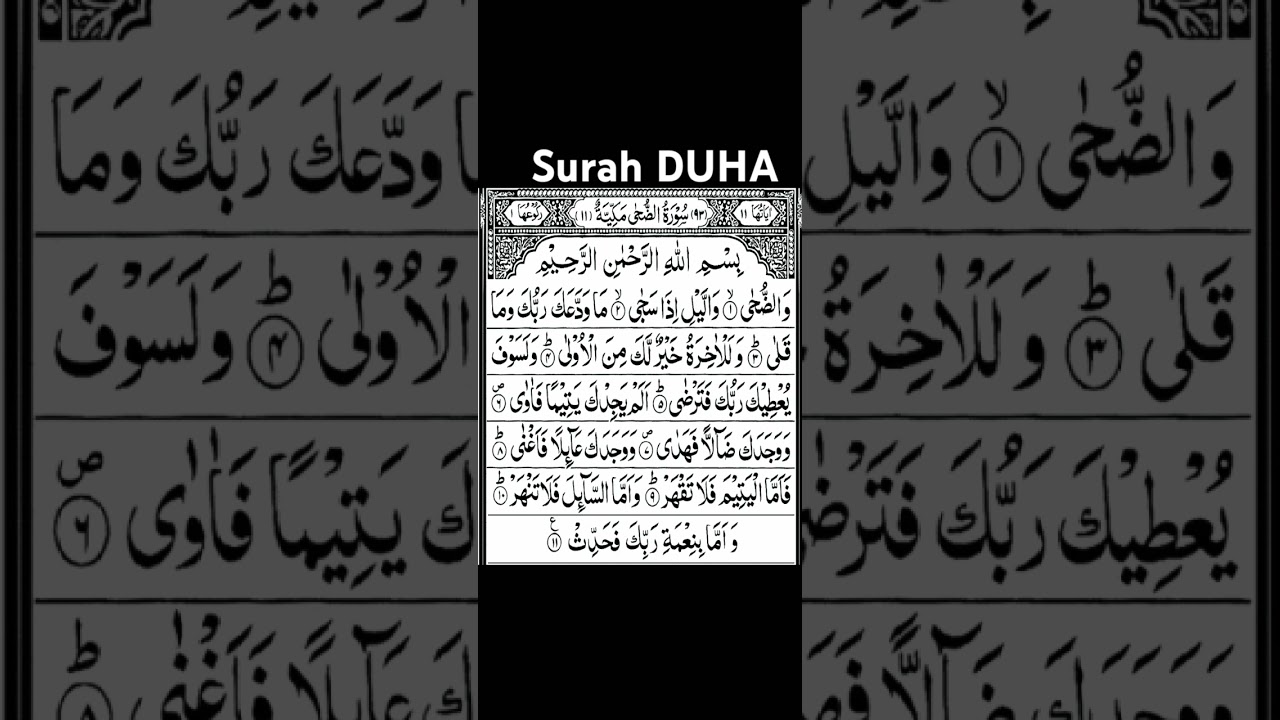 Surah DUHA
اٰیَاتُهَا ١١ (٩٣) سُوْرَةُ الضُّحٰى مَكِّيَّةٌ (١١) رُكُوْعُهَا ١
بِسْمِ اللّٰهِ الرَّحْمٰنِ الرَّحِيْمِ
وَالضُّحٰى ۙ﴿١﴾ وَالَّيْلِ اِذَا سَجٰى ۙ﴿٢﴾ مَا وَدَّعَكَ رَبُّكَ وَمَا
قَلٰى ؕ﴿٣﴾ وَلَلْاٰخِرَةُ خَيْرٌ لَّكَ مِنَ الْاُوْلٰى ؕ﴿٤﴾ وَلَسَوْفَ
يُعْطِيْكَ رَبُّكَ فَتَرْضٰى ؕ﴿٥﴾ اَلَمْ يَجِدْكَ يَتِيْمًا فَاٰوٰى ۪﴿٦﴾
وَوَجَدَكَ ضَآلًّا فَهَدٰى ۪﴿٧﴾ وَوَجَدَكَ عَآئِلًا فَاَغْنٰى ؕ﴿٨﴾
فَاَمَّا الْيَتِيْمَ فَلَا تَقْهَرْ ؕ﴿٩﴾ وَاَمَّا السَّآئِلَ فَلَا تَنْهَرْ ؕ﴿١٠﴾
وَاَمَّا بِنِعْمَةِ رَبِّكَ فَحَدِّثْ ﴿١١﴾ ع